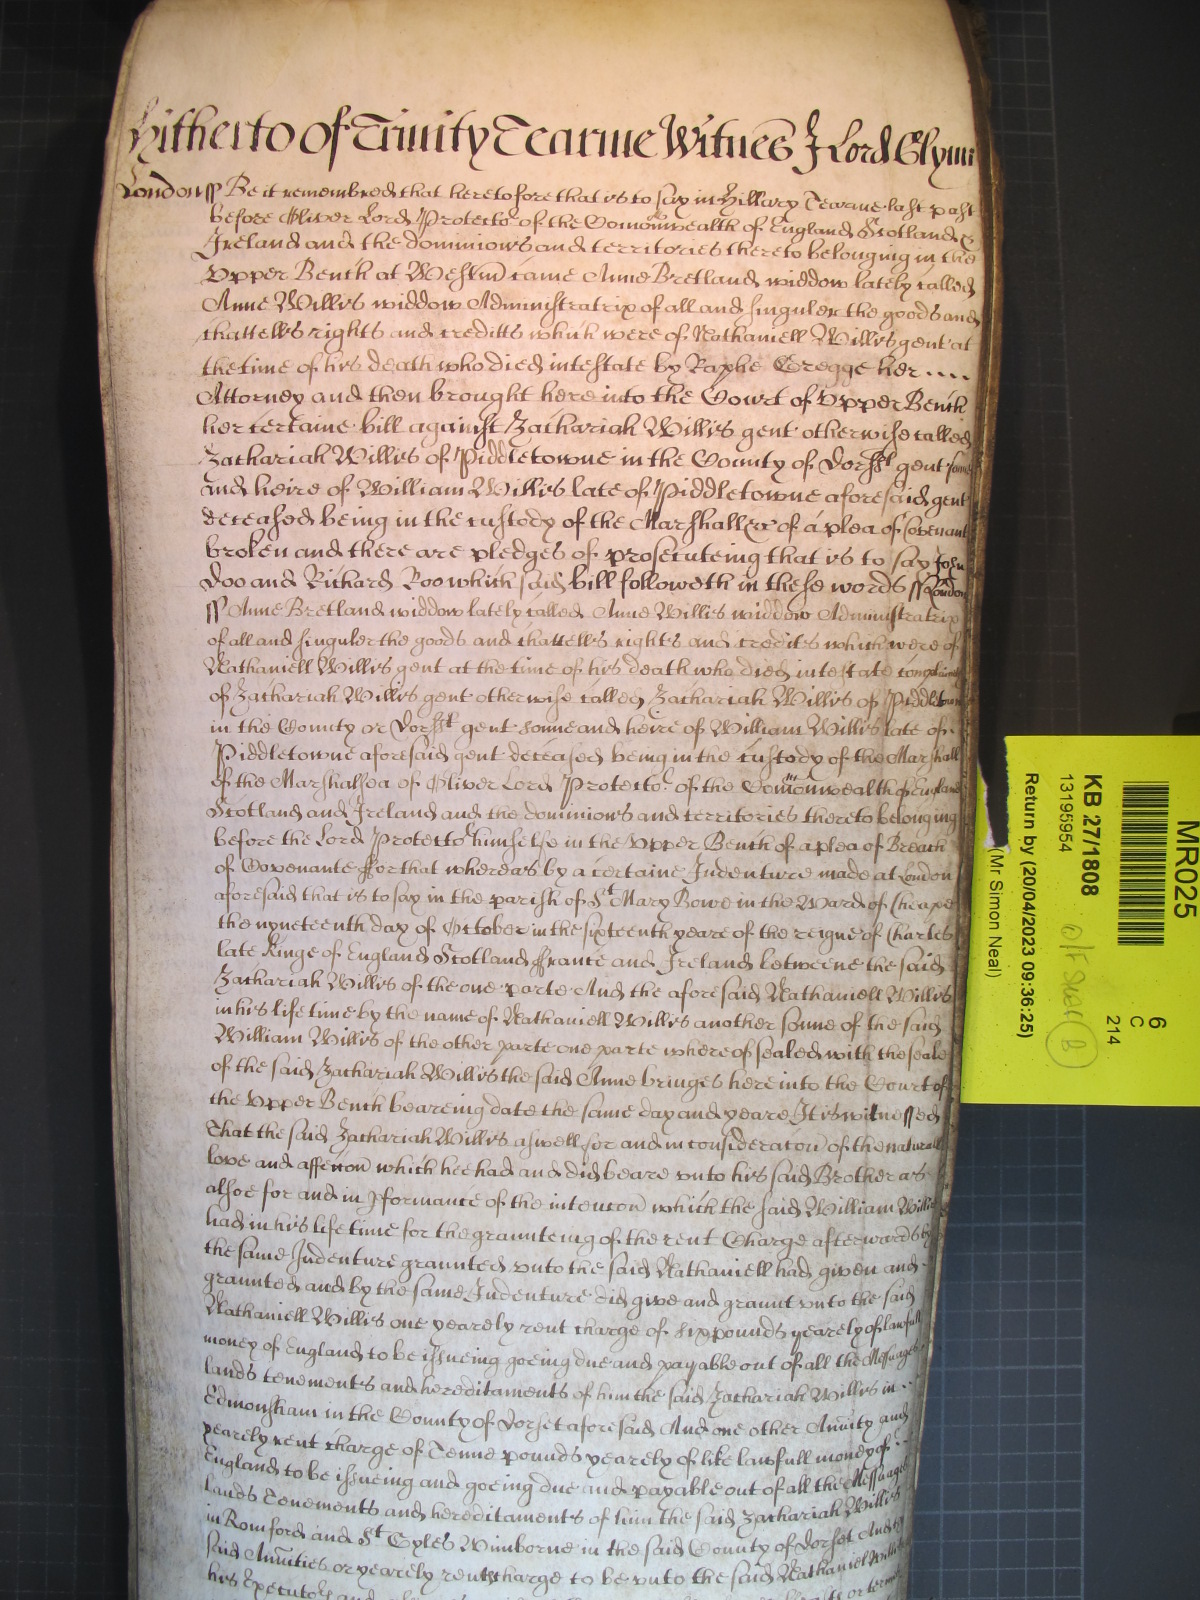 Hitherto of Trinity Tearme Witnes J Lord Glynn
London ss Be it remembred that heretofore that is to say in Hillary Tearme last past
before Oliver Lord Protector of the Comonwealth of England Scotland &
Ireland and the dominions and territories thereto belonging in the
Upper Bench at Westm came Anne Bretland widdow lately called
Anne Willis widdow Administratrix of all and singuler the goods and
chattells rights and creditts which were of Nathaniell Willis gent at
the time of his death who died intestate by Raphe Gregge her ....
Attorney and then brought here into the Court of Upper Bench
her certaine bill against Zachariah Willis gent otherwise called
Zachariah Willis of Piddletowne in the County of Dorst gent sonne
and heire of William Willis late of Piddletowne aforesaid gent
deceased being in the custody of the Marshall &c of a plea of Covenant
broken and there are pledges of prosecuteing that is to say John
Doo and Richard Roo which said bill followeth in these words ss London
ss Anne Bretland widdow lately called Anne Willis widdow Administratrix
of all and singuler the goods and chattells rights and credits which were of
Nathaniell Willis gent at the time of his death who died intestate complaines
of Zachariah Willis gent otherwise called Zachariah Willis of Piddletowne
in the County of Dorst gent sonne and heire of William Willis late of
Piddletowne aforesaid gent deceased being in the custody of the Marshall
of the Marshalsea of Oliver Lord Protector of the Comonwealth of England
Scotland and Ireland and the dominions and territories thereto belonging
before the Lord Protector himselfe in the Upper Bench of a plea of Breach
of Covenante ffor that whereas by a certaine Indenture made at London
aforesaid that is to say in the parish of St Mary Bowe in the Ward of Cheape
the nyneteenth day of October in the sixteenth yeare of the reigne of Charles
late Kinge of England Scotland ffrance and Ireland betweene the said
Zachariah Willis of the one parte And the aforesaid Nathaniell Willis
in his life time by the name of Nathaniell Willis another sonne of the said
William Willis of the other parte one parte whereof sealed with the seale
of the said Zachariah Willis the said Anne bringes here into the Court of
the Upper Bench beareing date the same day and yeare It is witnessed
That the said Zachariah Willis aswell for and in consideracon of the naturall
love and affeccon which hee had and did beare unto his said Brother as
alsoe for and in pformance of the intencon which the said William Willis
had in his life time for the graunteing of the rent Charge afterwards by
the same Indenture graunted unto the said Nathaniell had given and
graunted and by the same Indenture did give and graunt unto the said
Nathaniell Willis one yearely rent charge of six pounds yearely of lawfull
money of England to be issueing goeing due and payable out of all the Messuages
lands tenements and hereditaments of him the said Zachariah Willis in ..
Edmonsham in the County of Dorset aforesaid And one other Anuity and
yearely rent charge of Tenne pounds yearely of like lawfull money of
England to be issueing and goeing due and payable out of all the Messuages
lands Tenements and hereditaments of him the said Zachariah Willis
in Romford and St Gyles Wimborne in the said County of Dorset And
said Anuities or yearely rent charge to be unto the said Nathaniel Willis
his Executors and
MR025
6
C
214
KB 27/1808
13195954
Return by (20/04/2023 09:36:25)
(Mr Simon Neal)